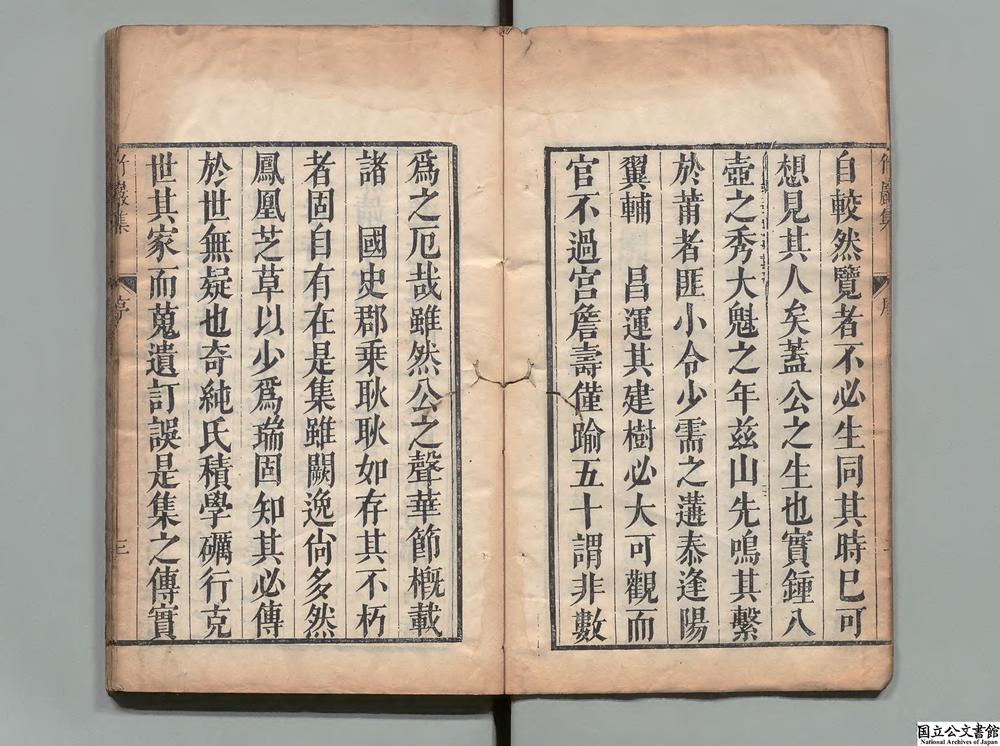 自較然覽者不必生同其時已可
想見其人矣蓋公之生也實鍾八
壺之秀大魁之年玆山先鳴其繫
於莆者匪小令少需之遘泰逢陽
翼輔 昌運其建樹必大可觀而
官不過宮詹壽僅踰五十謂非數
爲之厄哉雖然公之聲華節槪載
諸 國史郡乘耿耿如存其不朽
者固自有在是集雖闕逸尙多然
鳳凰芝草以少爲瑞固知其必傳
於世無疑也奇純氏積學礪行克
世其家而蒐遺訂誤是集之傳實
竹巖集
序
三
国立公文書館
National Archives of Japan